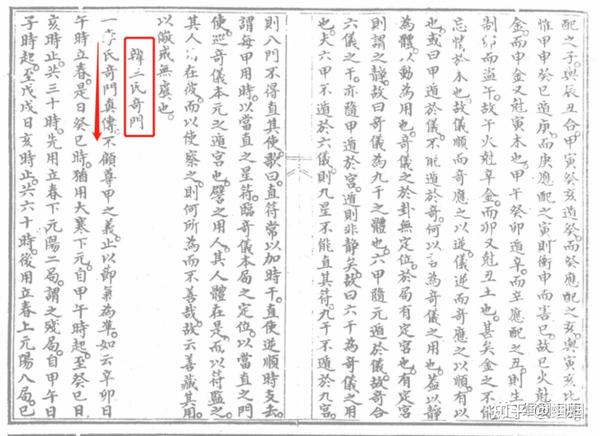 配之子與辰丑合甲寅癸亥遁癸而癸應配之亥與寅亥比
惟甲申癸巳遁庚而庚應配之寅則衝申而害巳故巳火尅
金而申金又尅寅木也甲午癸卯遁辛而辛應配之丑則生
制卯而盗午故午火尅辛金而卯又尅丑土也其矣金之不能
忘情於木也故儀順而奇應之以逆儀逆而奇應之以順有以
也或曰甲遁於儀不能遁於奇何以為奇儀之用也蓋以靜
為體以動為用也奇儀之於卦無定位於局有定宫也有定宫
則謂之靜故曰奇儀為九干之體也六甲隨元遁於儀故奇合
六儀之干亦隨甲遁於宫遁則非靜矣故曰六干為奇儀之用
也夫六甲不遁於六儀則九星不能直其符九干不遁於九宫
則八門不得直其使歌曰直符常以加時干直使逆順時支去
謂每甲用時以當直之星符臨奇儀本局之定位以當直之門
使巡奇儀本元之遁宫也譬之用人其人體在是而以符監之
其人在彼而以使察之則何所為而不善哉故云善藏其用
以儆戒無虞也
韓三氏奇門
一李氏奇門真傳不顧尊甲之義止以節氣為準如云辛卯日
午時立春是日癸巳時猶用大寒下元自甲午時起至癸巳日
亥時止共三十時先用立春下元陽二局謂之殘局自甲午日
子時起至戊戌日亥時止共六十時後用立春上元陽八局已
知乎 @蝈蝈